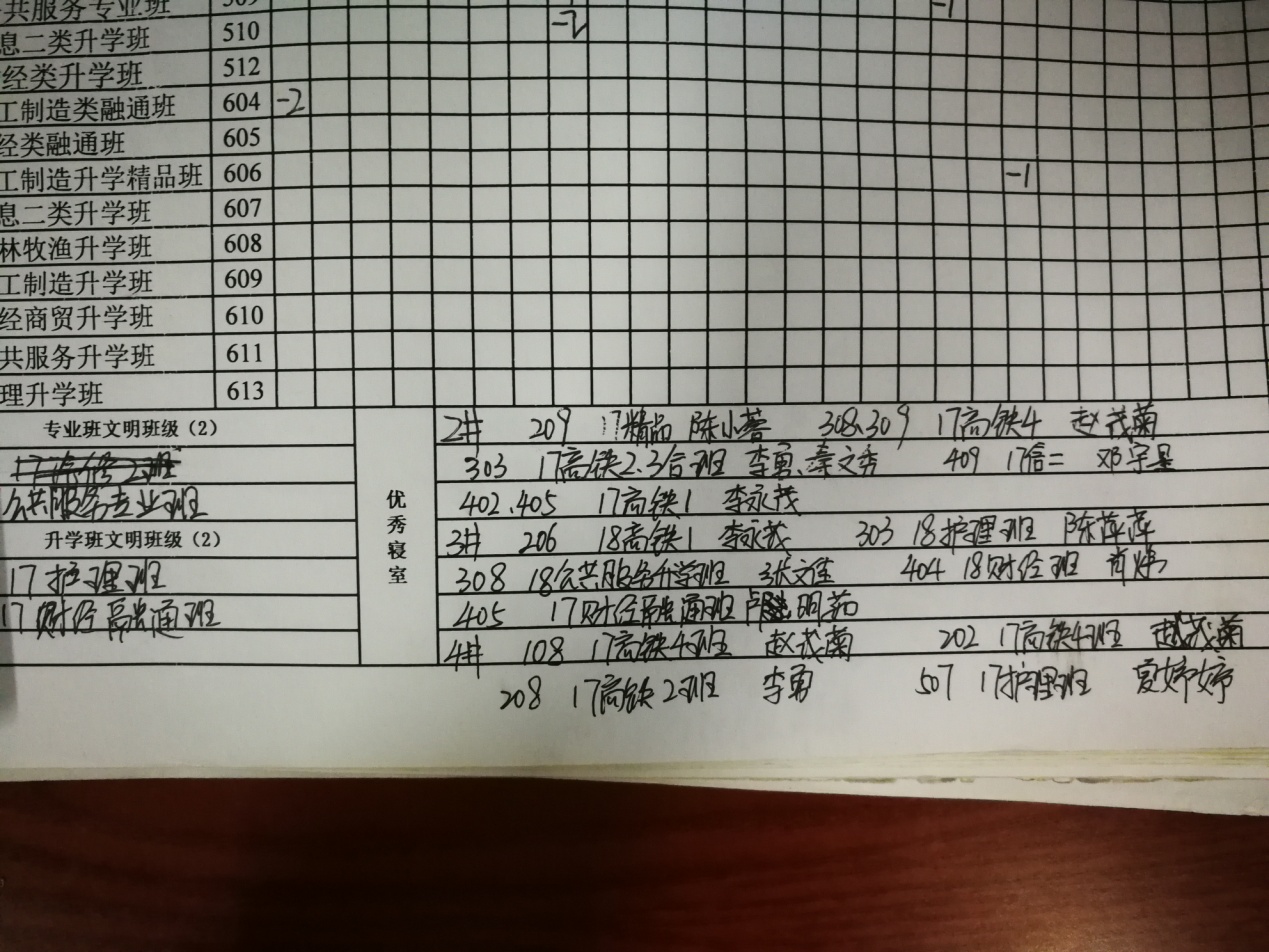 共服务专业班 509 -1
息二类升学班 510 -2
经类升学班 512
工制造类融通班 604 -2
经类融通班 605
工制造升学精品班 606 -1
息二类升学班 607
林牧渔升学班 608
工制造升学班 609
经商贸升学班 610
共服务升学班 611
理升学班 613
专业班文明班级（2）
公共服务专业班
升学班文明班级（2）
17护理班
17财经融通班
优秀寝室
2# 209 17精品 陈小蓉 308、309 17高铁4 赵茂菊
303 17高铁2.3合班 李勇、秦文秀 409 17信二 邓宇星
402、405 17高铁1 李永茂
3# 206 18高铁1 李永茂 303 18护理班 陈萍萍
308 18公共服务升学班 404 18财经班 肖炜
405 17财经融通班 明茹
4# 108 17高铁4班 赵茂菊 202 17高铁4班 赵茂菊
208 17高铁2班 李勇 507 17护理班 夏婷婷